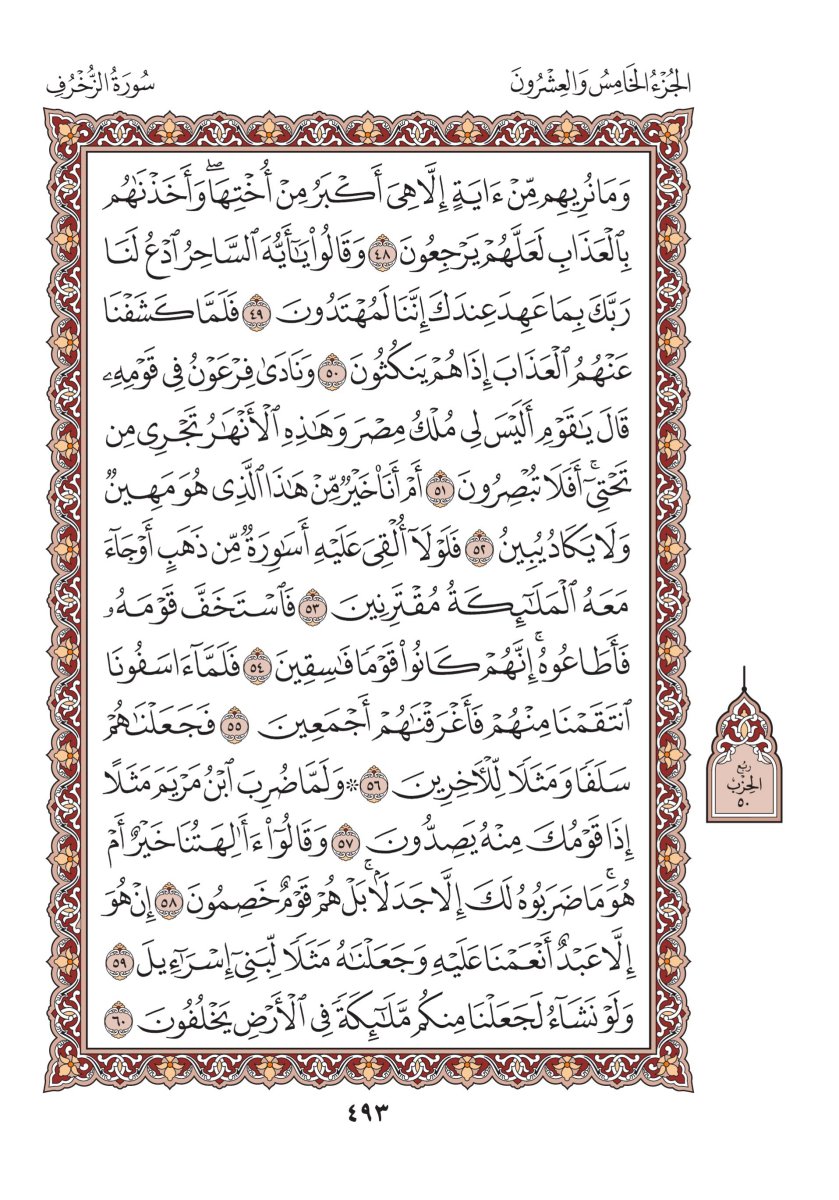 الجُزْءُ الخَامِسُ وَالعِشْرُونَ
سُورَةُ الزُّخْرُفِ
وَمَا نُرِيهِم مِّنْ ءَايَةٍ إِلَّا هِىَ أَكْبَرُ مِنْ أُخْتِهَاۖ وَأَخَذْنَٰهُم
بِٱلْعَذَابِ لَعَلَّهُمْ يَرْجِعُونَ ٤٨ وَقَالُوا۟ يَٰٓأَيُّهَ ٱلسَّاحِرُ ٱدْعُ لَنَا
رَبَّكَ بِمَا عَهِدَ عِندَكَ إِنَّنَا لَمُهْتَدُونَ ٤٩ فَلَمَّا كَشَفْنَا
عَنْهُمُ ٱلْعَذَابَ إِذَا هُمْ يَنكُثُونَ ٥٠ وَنَادَىٰ فِرْعَوْنُ فِى قَوْمِهِۦ
قَالَ يَٰقَوْمِ أَلَيْسَ لِى مُلْكُ مِصْرَ وَهَٰذِهِ ٱلْأَنْهَٰرُ تَجْرِى مِن
تَحْتِىٓۚ أَفَلَا تُبْصِرُونَ ٥١ أَمْ أَنَا۠ خَيْرٌ مِّنْ هَٰذَا ٱلَّذِى هُوَ مَهِينٌ
وَلَا يَكَادُ يُبِينُ ٥٢ فَلَوْلَآ أُلْقِىَ عَلَيْهِ أَسْوِرَةٌ مِّن ذَهَبٍ أَوْ جَآءَ
مَعَهُ ٱلْمَلَٰٓئِكَةُ مُقْتَرِنِينَ ٥٣ فَٱسْتَخَفَّ قَوْمَهُۥ
فَأَطَاعُوهُۚ إِنَّهُمْ كَانُوا۟ قَوْمًا فَٰسِقِينَ ٥٤ فَلَمَّآ ءَاسَفُونَا
ٱنتَقَمْنَا مِنْهُمْ فَأَغْرَقْنَٰهُمْ أَجْمَعِينَ ٥٥ فَجَعَلْنَٰهُمْ
سَلَفًا وَمَثَلًا لِّلْءَاخِرِينَ ٥٦ ۞ وَلَمَّا ضُرِبَ ٱبْنُ مَرْيَمَ مَثَلًا
إِذَا قَوْمُكَ مِنْهُ يَصِدُّونَ ٥٧ وَقَالُوٓا۟ ءَأَٰلِهَتُنَا خَيْرٌ أَمْ
هُوَۚ مَا ضَرَبُوهُ لَكَ إِلَّا جَدَلًۢاۚ بَلْ هُمْ قَوْمٌ خَصِمُونَ ٥٨ إِنْ هُوَ
إِلَّا عَبْدٌ أَنْعَمْنَا عَلَيْهِ وَجَعَلْنَٰهُ مَثَلًا لِّبَنِىٓ إِسْرَٰٓءِيلَ ٥٩
وَلَوْ نَشَآءُ لَجَعَلْنَا مِنكُم مَّلَٰٓئِكَةً فِى ٱلْأَرْضِ يَخْلُفُونَ ٦٠
رُبْع
الحِزْب
٥٠
٤٩٣